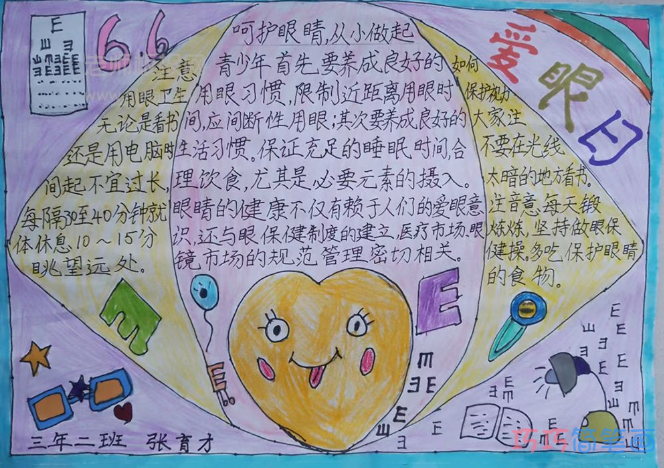 6.6
爱眼日
呵护眼睛,从小做起
注意
用眼卫生
无论是看书
还是用电脑时
间起不宜过长,
每隔30至40分钟就
体休息10~15分
眺望远处。
青少年首先要养成良好的
用眼习惯,限制近距离用眼时
间,应间断性用眼;其次要养成良好的
生活习惯。保证充足的睡眠时间,合
理饮食,尤其是必要元素的摄入。
眼睛的健康不仅有赖于人们的爱眼意
识,还与眼保健制度的建立、医疗市场,眼
镜市场的规范管理密切相关。
如何
保护视力
大家注
不要在光线
太暗的地方看书。
注音意每天锻
炼炼,坚持做眼保
健操,多吃保护眼睛
的食物。
三年二班 张育才